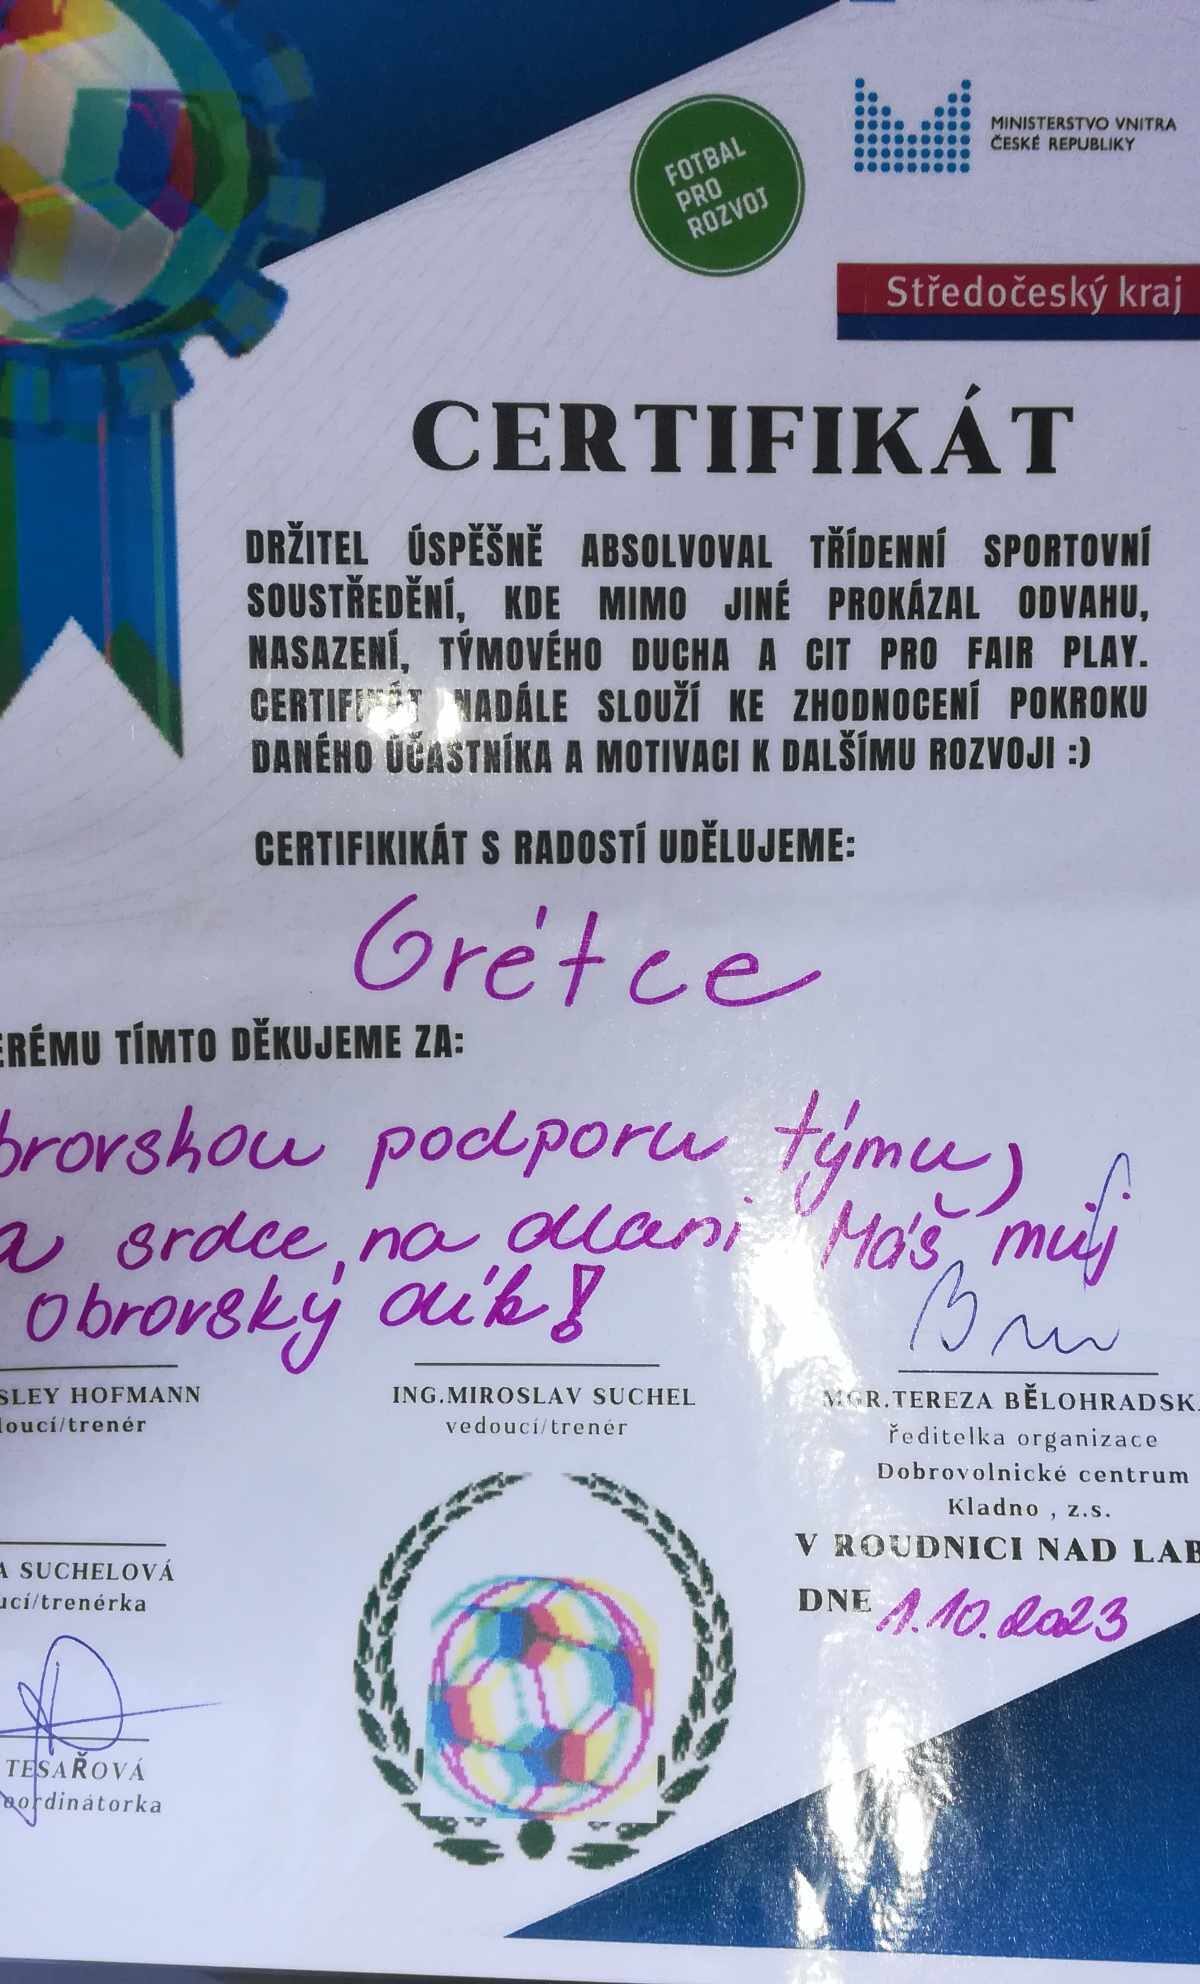 FOTBAL
PRO
ROZVOJ
MINISTERSTVO VNITRA
ČESKÉ REPUBLIKY
Středočeský kraj
CERTIFIKÁT
DRŽITEL ÚSPĚŠNĚ ABSOLVOVAL TŘÍDENNÍ SPORTOVNÍ
SOUSTŘEDĚNÍ, KDE MIMO JINÉ PROKÁZAL ODVAHU,
NASAZENÍ, TÝMOVÉHO DUCHA A CIT PRO FAIR PLAY.
CERTIFIKÁT NADÁLE SLOUŽÍ KE ZHODNOCENÍ POKROKU
DANÉHO ÚČASTNÍKA A MOTIVACI K DALŠÍMU ROZVOJI :)
CERTIFIKIKÁT S RADOSTÍ UDĚLUJEME:
Grétce
ERÉMU TÍMTO DĚKUJEME ZA:
brovskou podporu týmu,
a srdce na dlani Máš můj
obrovský dík!
SLEY HOFMANN
doucí/trenér
ING.MIROSLAV SUCHEL
vedoucí/trenér
MGR.TEREZA BĚLOHRADSK
ředitelka organizace
Dobrovolnické centrum
Kladno , z.s.
A SUCHELOVÁ
ucí/trenérka
V ROUDNICI NAD LAB
DNE 1.10.2023
TESAŘOVÁ
oordinátorka